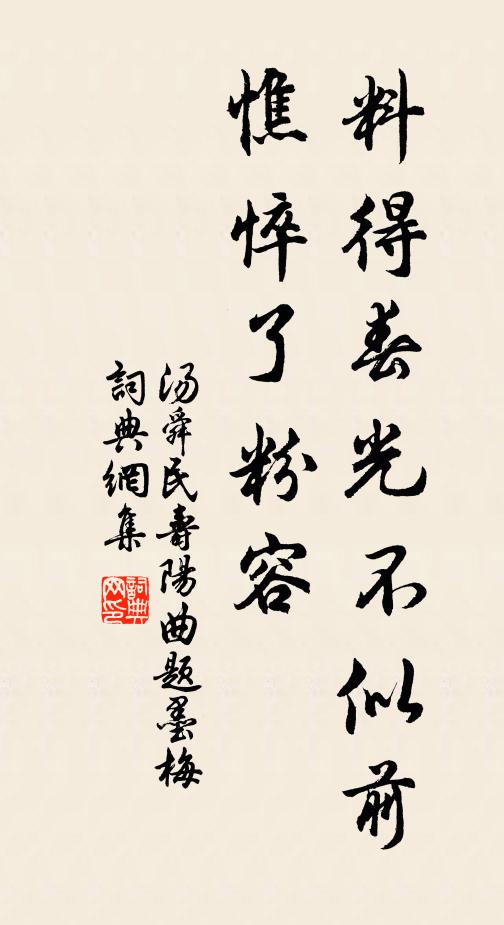 料得春光不似前
憔悴了粉容
湯舜民壽陽曲題墨梅
詞典網集
詞典网印